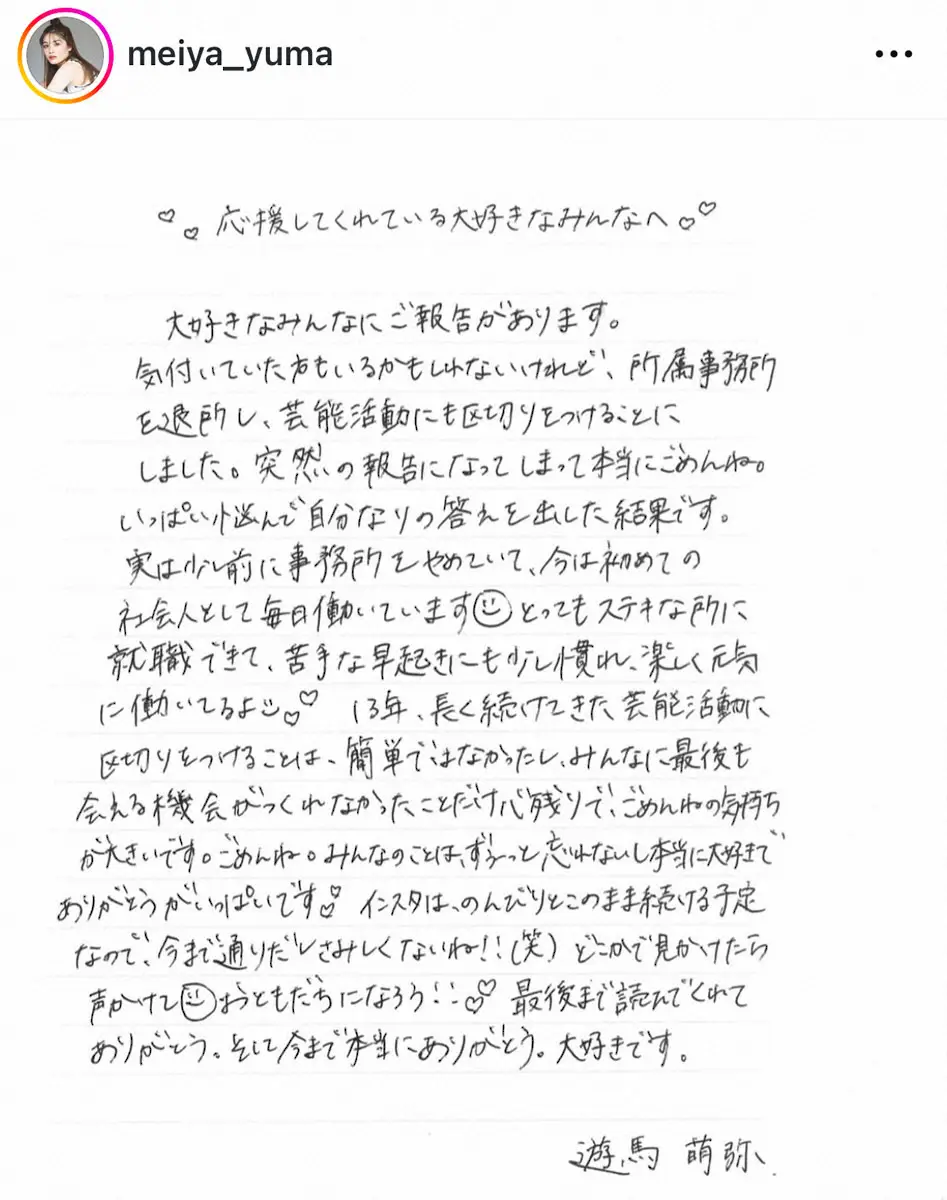 meiya_yuma
応援してくれている大好きなみんなへ
大好きなみんなにご報告があります。
気付いていた方もいるかもしれないけれど、所属事務所
を退所し、芸能活動にも区切りをつけることに
しました。突然の報告になってしまって本当にごめんね。
いっぱい悩んで自分なりの答えを出した結果です。
実は少し前に事務所をやめていて、今は初めての
社会人として毎日働いています☺とってもステキな所に
就職できて、苦手な早起きにも少し慣れ、楽しく元気
に働いてるよ 13年、長く続けてきた芸能活動に
区切りをつけることは、簡単ではなかったし、みんなに最後も
会える機会がつくれなかったことだけ心残りで、ごめんねの気持ち
が大きいです。ごめんね。みんなのことは、ずぅーっと忘れないし本当に大好きで
ありがとうがいっぱいです♡ インスタは、のんびりとこのまま続ける予定
なので、今まで通りだしさみしくないね!!(笑) どこかで見かけたら
声かけて☺おともだちになろう!! 最後まで読んでくれて
ありがとう。そして今まで本当にありがとう。大好きです。
遊馬 萌弥